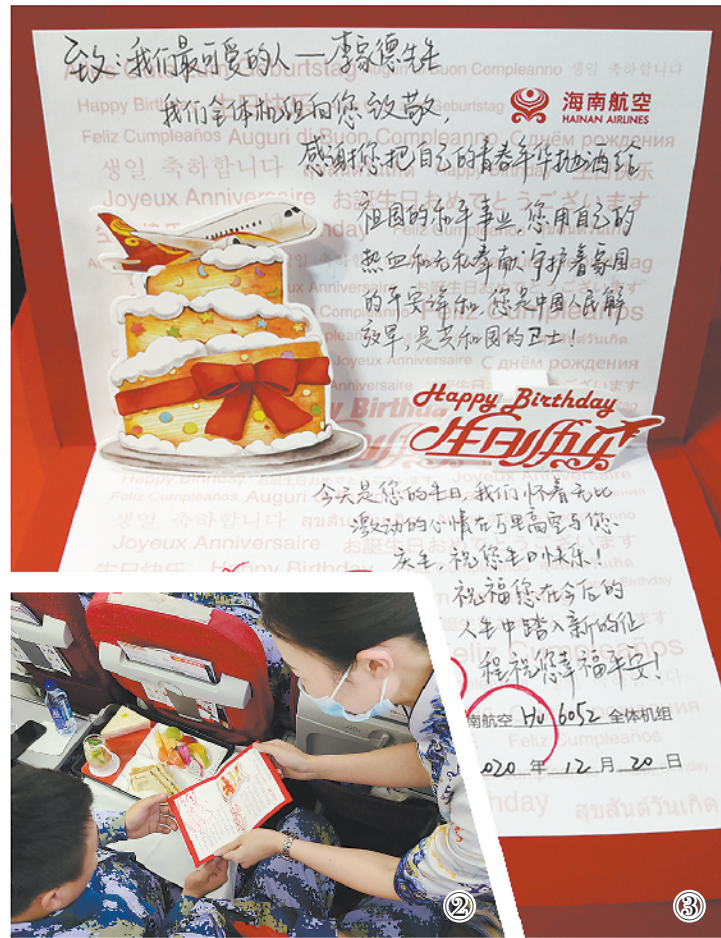 致:我们最可爱的人——李家德先生
我们全体机组向您致敬,
海南航空
HAINAN AIRLINES
感谢您把自己的青春年华抛洒给
祖国的和平事业,您用自己的
热血和无私奉献守护着家国
的平安谐和,您是中国人民解
放军,是共和国的卫士!
Happy Birthday
生日快乐
今天是您的生日,我们怀着无比
激动的心情在万里高空与您
庆生,祝您生日快乐!
祝福您在今后的
人生中踏入新的征
程,祝您幸福平安!
南航空 HU 6052 全体机组
2020 年 12 月 20 日
Feliz Cumpleaños
Auguri di Buon Compleanno
С днём рождения
생일 축하합니다
Joyeux Anniversaire
お誕生日おめでとうございます
สุขสันต์วันเกิด
②
③